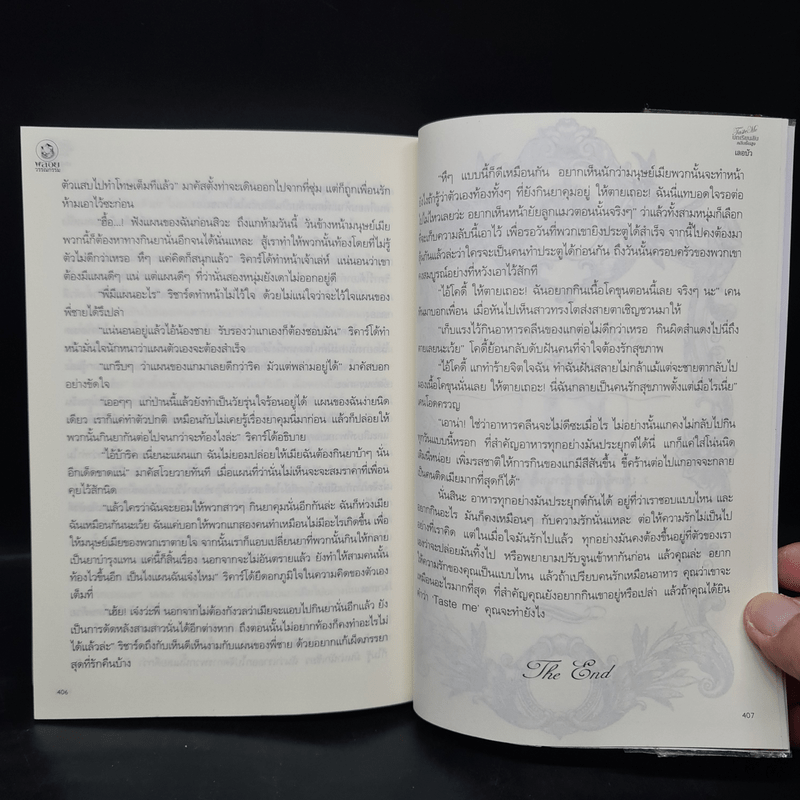 พลอย
วรรณกรรม
ตัวแสบไปทำโทษเต็มทีแล้ว” มาคัสตั้งท่าจะเดินออกไปจากที่ซุ่ม แต่ก็ถูกเพื่อนรัก
ห้ามเอาไว้ซะก่อน
“ฮื้อ...! ฟังแผนของฉันก่อนสิวะ ถึงแกห้ามวันนี้ วันข้างหน้ามนุษย์เมีย
พวกนี้ก็ต้องหาทางกินยานั่นอีกจนได้นั่นแหละ สู้เราทำให้พวกนั้นท้องโดยที่ไม่รู้
ตัวไม่ดีกว่าเหรอ หึๆ แค่คิดก็สนุกแล้ว” ริคาร์โด้ทำหน้าเจ้าเล่ห์ แน่นอนว่าเขา
ต้องมีแผนดีๆ แน่ แต่แผนดีๆ ที่ว่านั่นสองหนุ่มยังเดาไม่ออกอยู่ดี
“พี่มีแผนอะไร” ริชาร์ดทำหน้าไม่ไว้ใจ ด้วยไม่แน่ใจว่าจะไว้ใจแผนของ
พี่ชายได้รึเปล่า
“แน่นอนอยู่แล้วไอ้น้องชาย รับรองว่าแกเองก็ต้องชอบมัน” ริคาร์โด้ทำ
หน้ามั่นใจนักหนาว่าแผนตัวเองจะต้องสำเร็จ
“แกรีบๆ ว่าแผนของแกมาเลยดีกว่าริค มัวแต่พล่ามอยู่ได้” มาคัสบอก
อย่างขัดใจ
“เออๆๆ แก่ป่านนี้แล้วยังทำเป็นวัยรุ่นใจร้อนอยู่ได้ แผนของฉันง่ายนิด
เดียว เราก็แค่ทำตัวปกติ เหมือนกับไม่เคยรู้เรื่องยาคุมนี่มาก่อน แล้วก็ปล่อยให้
พวกนั้นกินยากันต่อไปจนกว่าจะท้องไงล่ะ” ริคาร์โด้อธิบาย
“ไอ้บ้าริค เนี่ยนะแผนแก ฉันไม่ยอมปล่อยให้เมียฉันต้องกินยาบ้าๆ นั่น
อีกเด็ดขาดแน่” มาคัสโวยวายทันที เมื่อแผนที่ว่านั่นไม่เห็นจะจะสมราคาที่เพื่อน
คุยไว้สักนิด
“แล้วใครว่าฉันจะยอมให้พวกสาวๆ กินยาคุมนั่นอีกกันล่ะ ฉันก็ห่วงเมีย
ฉันเหมือนกันนะเว้ย ฉันแค่บอกให้พวกแกสองคนทำเหมือนไม่มีอะไรเกิดขึ้น เพื่อ
ให้มนุษย์เมียของพวกเราตายใจ จากนั้นเราก็แอบเปลี่ยนยาที่พวกนั้นกินให้กลาย
เป็นยาบำรุงแทน แค่นี้ก็สิ้นเรื่อง นอกจากจะไม่อันตรายแล้ว ยังทำให้สามคนนั้น
ท้องไวขึ้นอีก เป็นไงแผนฉันเจ๋งไหม” ริคาร์โด้ยืดอกภูมิใจในความคิดของตัวเอง
เต็มที่
“เฮ้ย! เจ๋งว่ะพี่ นอกจากไม่ต้องกังวลว่าเมียจะแอบไปกินยานั่นอีกแล้ว ยัง
เป็นการดัดหลังสามสาวนั่นได้อีกต่างหาก ถึงตอนนั้นไม่อยากท้องก็คงทำอะไรไม่
ได้แล้วล่ะ” ริชาร์ดถึงกับเห็นดีเห็นงามกับแผนของพี่ชาย ด้วยอยากแก้เผ็ดภรรยา
สุดที่รักคืนบ้าง
406
Taste Me
ฉบับเต็มสูบ
เลอบัว
“หึๆ แบบนี้ก็ดีเหมือนกัน อยากเห็นนักว่ามนุษย์เมียพวกนั้นจะทำหน้า
ยังไงถ้ารู้ว่าตัวเองท้องทั้งๆ ที่ยังกินยาคุมอยู่ ให้ตายเถอะ! ฉันนี่แทบอดใจรอต่อ
ไปไม่ไหวเลยว่ะ อยากเห็นหน้ายัยลูกแมวตอนนั้นจริงๆ” ว่าแล้วทั้งสามหนุ่มก็เลือก
ที่จะเก็บความลับนี้เอาไว้ เพื่อรอวันที่พวกเขายิงประตูได้สำเร็จ จากนี้ไปคงต้องมา
กันแล้วล่ะว่าใครจะเป็นคนทำประตูได้ก่อนกัน ถึงวันนั้นครอบครัวของพวกเขา
คงสมบูรณ์อย่างที่หวังเอาไว้สักที
“ไอ้โคดี้ ให้ตายเถอะ! ฉันอยากกินเนื้อโคขุนตอนนี้เลย จริงๆ นะ” เคน
หันมาบอกเพื่อน เมื่อหันไปเห็นสาวทรงโตส่งสายตาเชิญชวนมาให้
“เก็บแรงไว้กินอาหารคลีนของแกต่อไม่ดีกว่าเหรอ กินผิดสำแดงไปนี่ถึง
ตายเลยนะเว้ย” โคดี้ย้อนกลับดับฝันคนที่จำใจต้องรักสุขภาพ
“ไอ้โคดี้ แกทำร้ายจิตใจฉัน ทำฉันฝันสลายไม่กล้าแม้แต่จะชายตากลับไป
มองเนื้อโคขุนนั่นเลย ให้ตายเถอะ! นี่ฉันกลายเป็นคนรักสุขภาพตั้งแต่เมื่อไรเนี่ย”
เคนโอดครวญ
“เอาน่า! ใช่ว่าอาหารคลีนจะไม่ดีซะเมื่อไร ไม่อย่างนั้นแกคงไม่กลับไปกิน
ทุกวันแบบนี้หรอก ที่สำคัญอาหารทุกอย่างมันประยุกต์ได้นี่ แกก็แค่ใส่โน่นนิด
เติมนี่หน่อย เพิ่มรสชาติให้การกินของแกมีสีสันขึ้น ขี้คร้านต่อไปแกอาจจะกลาย
เป็นคนติดเมียมากที่สุดก็ได้”
นั่นสินะ อาหารทุกอย่างมันประยุกต์กันได้ อยู่ที่ว่าเราชอบแบบไหน และ
อยากกินอะไร มันก็คงเหมือนๆ กับความรักนั่นแหละ ต่อให้ความรักไม่เป็นไป
อย่างที่เราคิด แต่ในเมื่อใจมันรักไปแล้ว ทุกอย่างมันคงต้องขึ้นอยู่ที่ตัวของเรา
เองว่าจะปล่อยมันทิ้งไป หรือพยายามปรับจูนเข้าหากันก่อน แล้วคุณล่ะ อยาก
ให้ความรักของคุณเป็นแบบไหน แล้วถ้าเปรียบคนรักเหมือนอาหาร คุณว่าเขาจะ
เหมือนอะไรมากที่สุด ที่สำคัญคุณยังอยากกินเขาอยู่หรือเปล่า แล้วถ้าคุณได้ยิน
คำว่า ‘Taste me’ คุณจะทำยังไง
The End
407